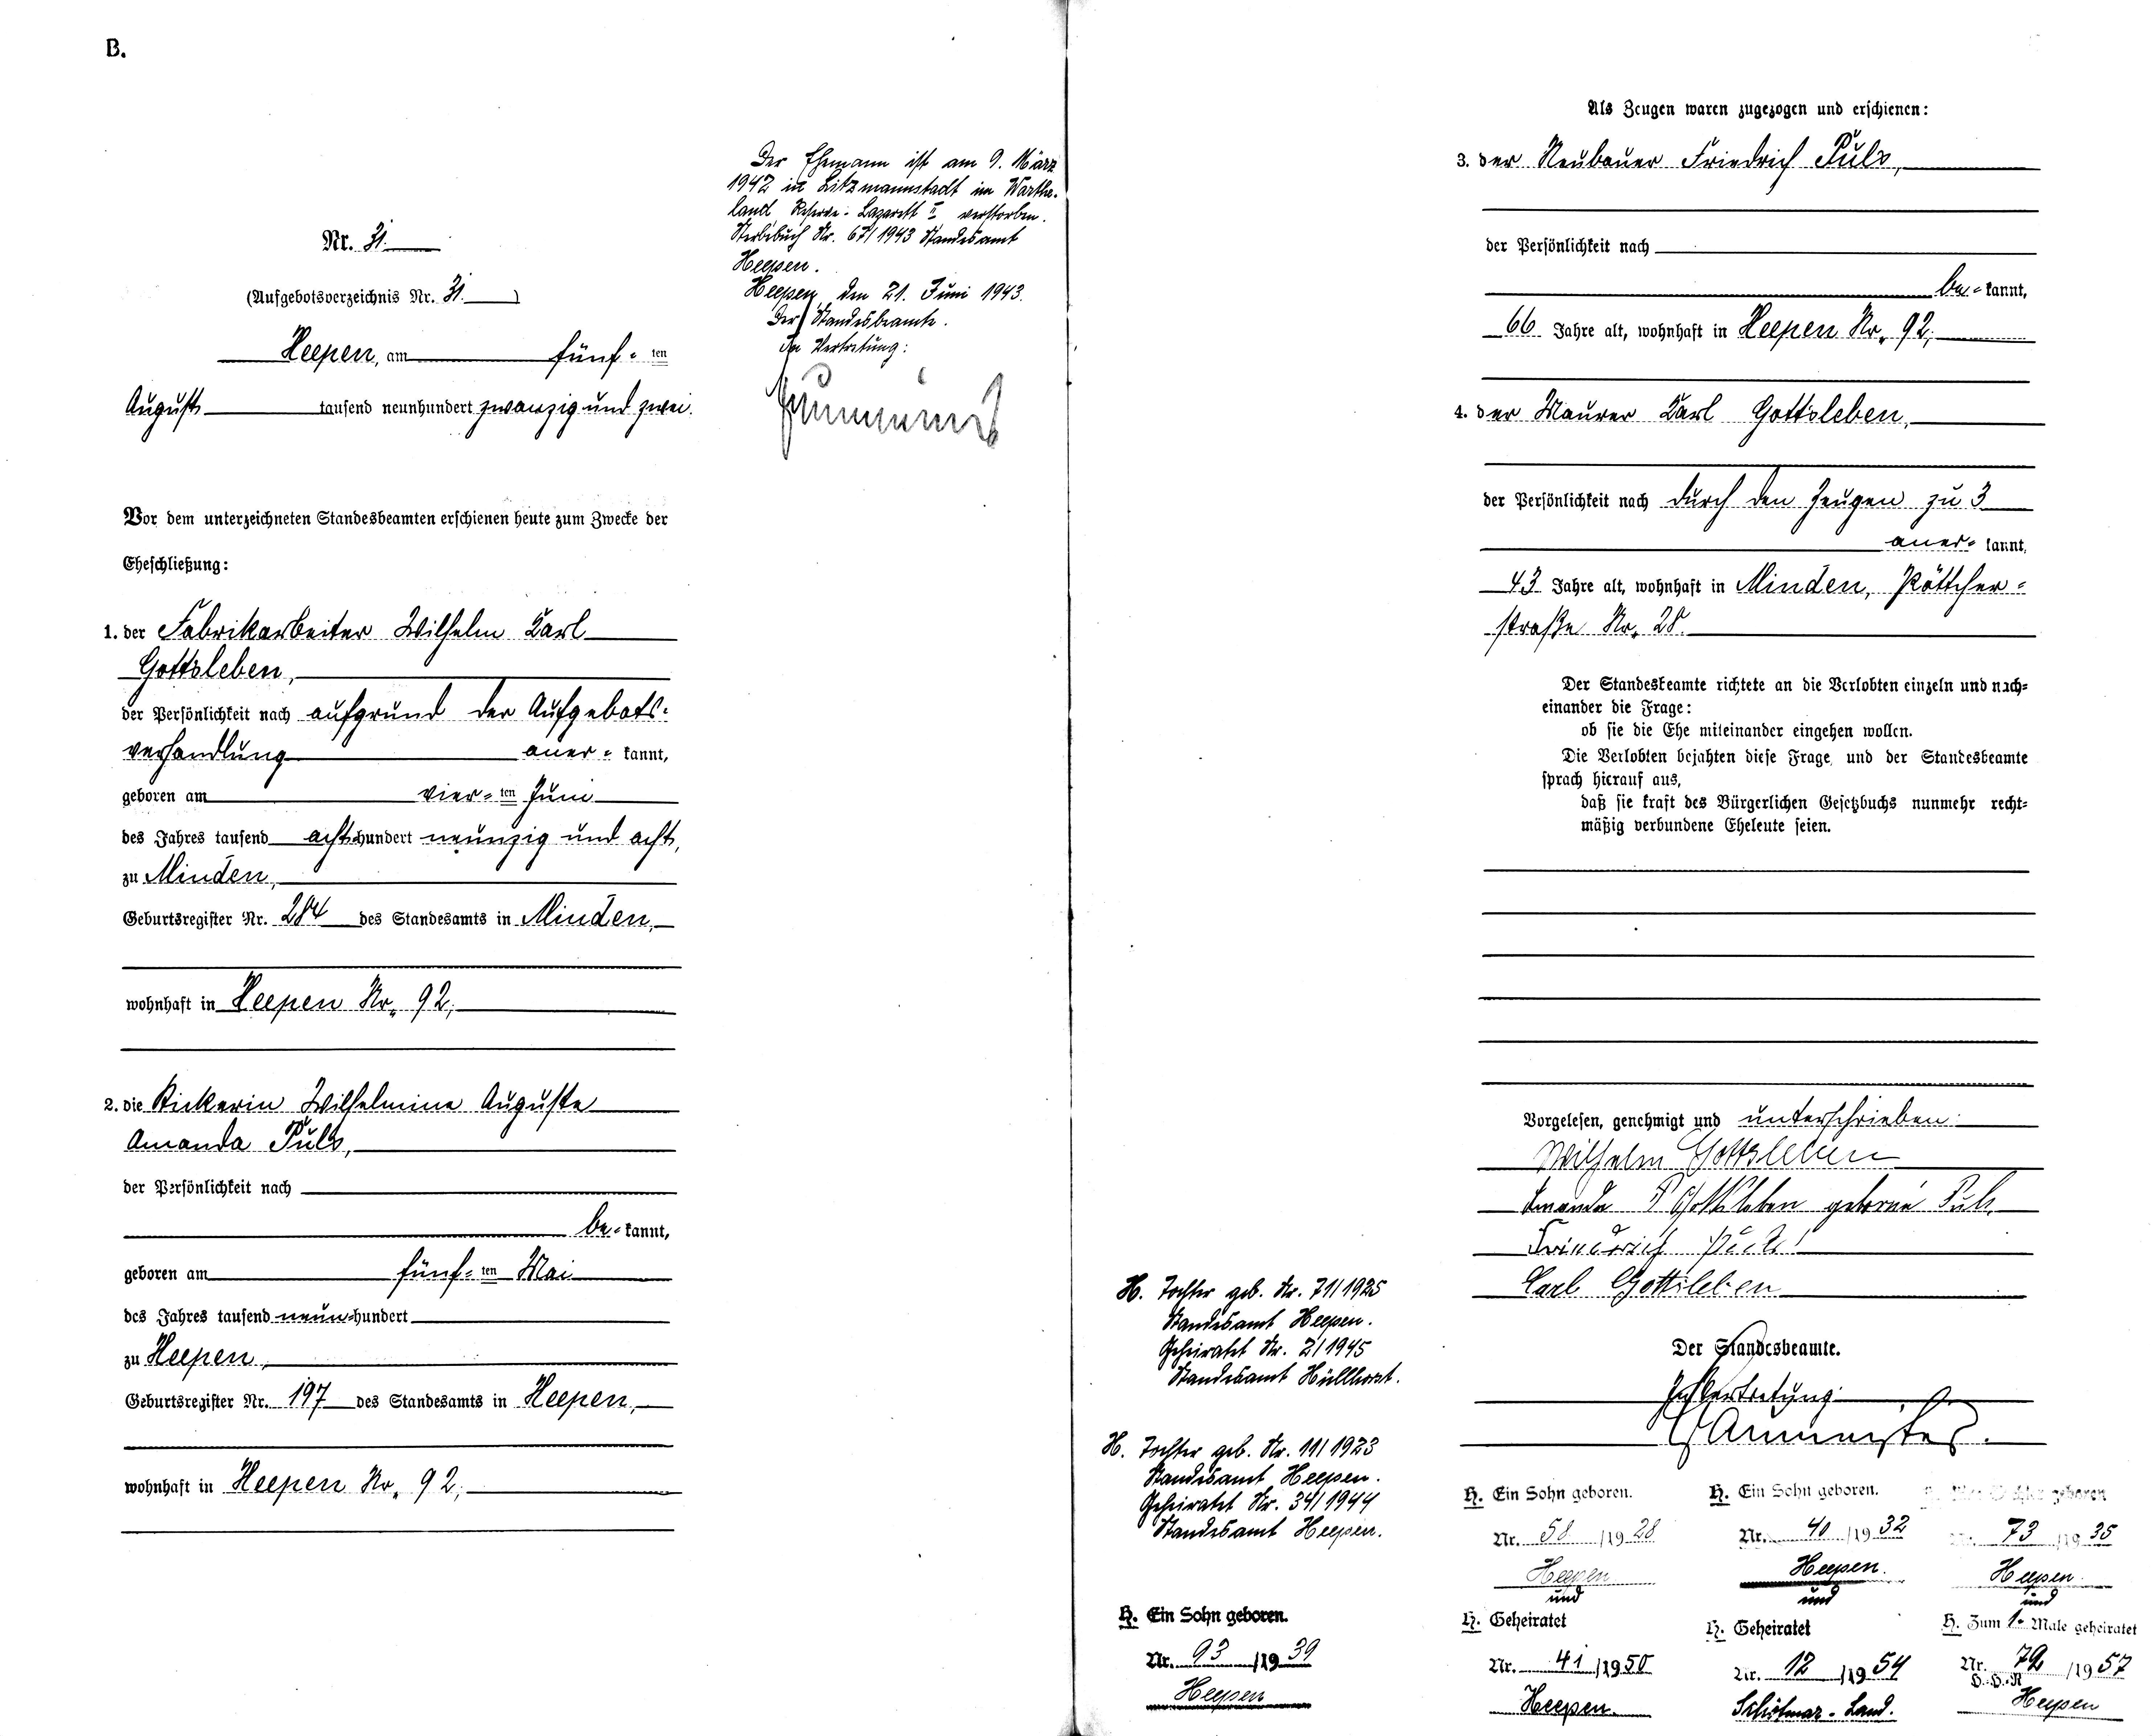 B.
Nr. 31.
(Aufgebotsverzeichnis Nr. 31.)
Heepen, am fünf-ten
August tausend neunhundert zwanzig und zwei.
Vor dem unterzeichneten Standesbeamten erschienen heute zum Zwecke der
Eheschließung:
1. der Fabrikarbeiter Wilhelm Karl
Gottsleben,
der Persönlichkeit nach aufgrund der Aufgebots-
verhandlung aner- kannt,
geboren am vier-ten Juni
des Jahres tausend achthundert neunzig und acht,
zu Minden,
Geburtsregister Nr. 284 des Standesamts in Minden,
wohnhaft in Heepen Nr. 92,
2. die Wilhelmine Auguste
Amanda Puls,
der Persönlichkeit nach
be- kannt,
geboren am fünf-ten Mai
des Jahres tausend neunhundert
zu Heepen,
Geburtsregister Nr. 197 des Standesamts in Heepen,
wohnhaft in Heepen Nr. 92,
Der Ehemann ist am 9. März
1942 in Litzmannstadt im Warthe-
land, Reserve-Lazarett II verstorben.
Sterbebuch Nr. 67/1943 Standesamt
Heepen.
Heepen, den 21. Juni 1943.
Der Standesbeamte.
In Vertretung:
Als Zeugen waren zugezogen und erschienen:
3. der Neubauer Friedrich Puls,
der Persönlichkeit nach
be- kannt,
66 Jahre alt, wohnhaft in Heepen Nr. 92,
4. der Maurer Karl Gottsleben,
der Persönlichkeit nach durch den Zeugen zu 3
aner- kannt,
43 Jahre alt, wohnhaft in Minden,
straße Nr. 28.
Der Standesbeamte richtete an die Verlobten einzeln und nach-
einander die Frage:
ob sie die Ehe miteinander eingehen wollen.
Die Verlobten bejahten diese Frage, und der Standesbeamte
sprach hierauf aus,
daß sie kraft des Bürgerlichen Gesetzbuchs nunmehr recht-
mäßig verbundene Eheleute seien.
Vorgelesen, genehmigt und unterschrieben:
Wilhelm Gottsleben
Amanda Gottsleben geborne Puls
Friedrich Puls
Carl Gottsleben
Der Standesbeamte.
In Vertretung:
H. Tochter geb. Nr. 71/1925
Standesamt Heepen.
Geheiratet Nr. 2/1945
Standesamt Hüllhorst.
H. Tochter geb. Nr. 11/1923
Standesamt Heepen.
Geheiratet Nr. 34/1944
Standesamt Heepen.
H. Ein Sohn geboren.
Nr. 93 /1939
Heepen
H. Ein Sohn geboren.
Nr. 58 /1928
Heepen
und
H. Geheiratet
Nr. 41 /1950
Heepen.
H. Ein Sohn geboren.
Nr. 40 /1932
Heepen.
und
H. Geheiratet
Nr. 12 /1954
Schötmar-Land.
geboren
Nr. 73 /1935
Heepen
und
H. Zum 1. Male geheiratet
Nr. 72 /1957
Heepen